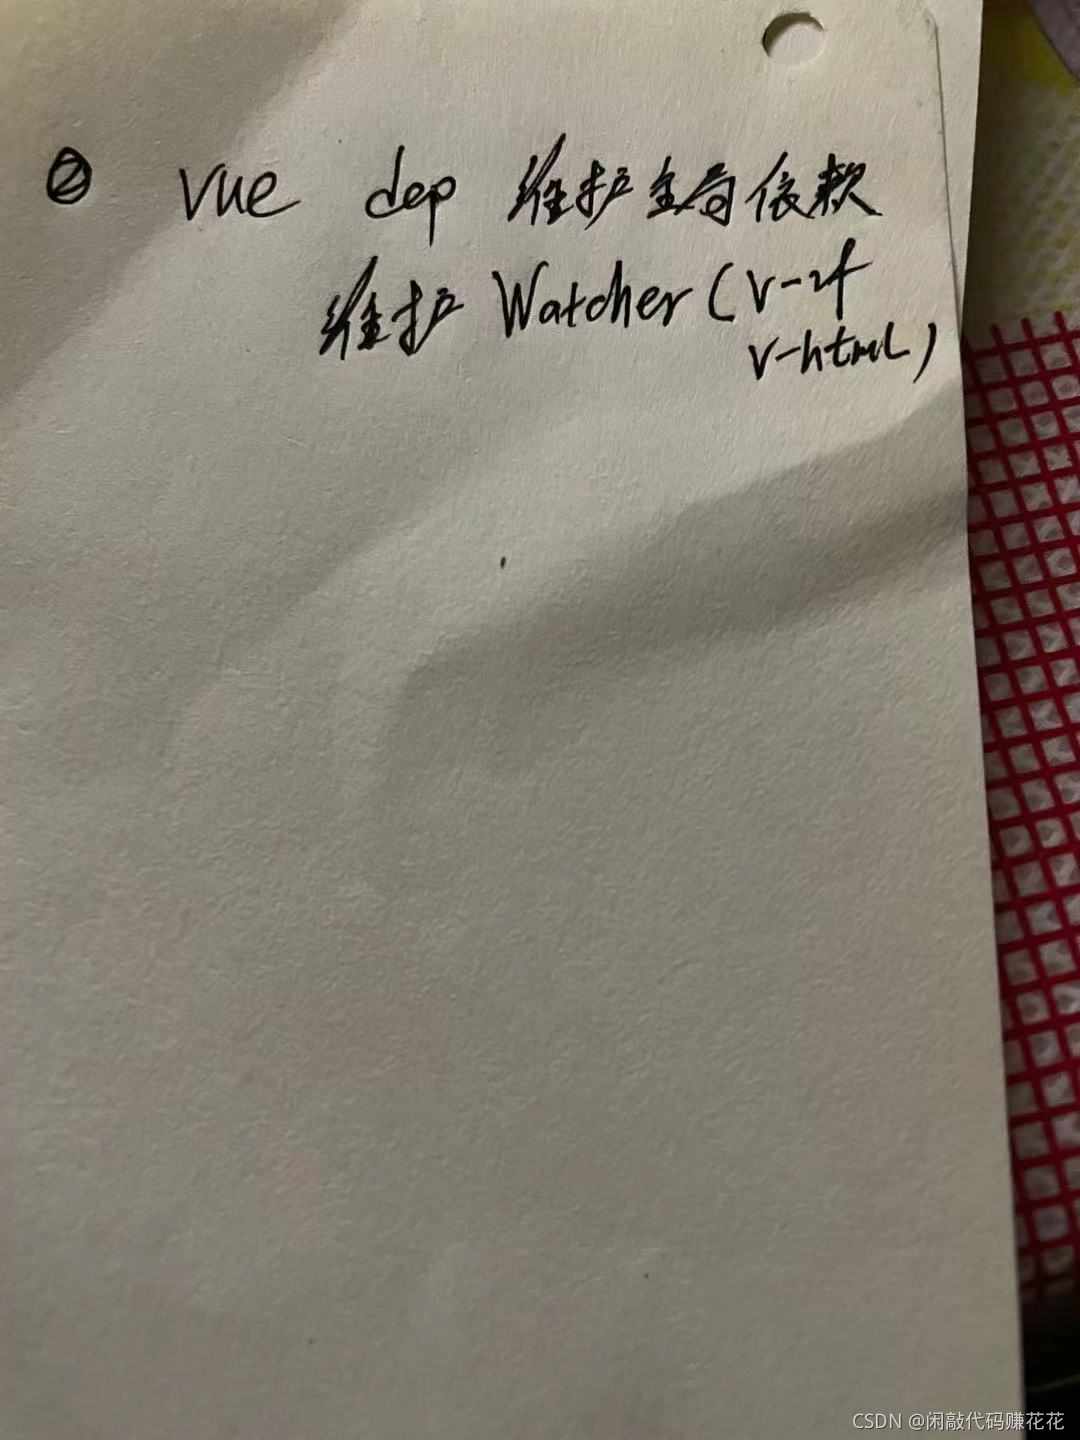 ② vue dep 维护全局依赖
维护 Watcher (v-if
v-html)
CSDN @闲敲代码赚花花